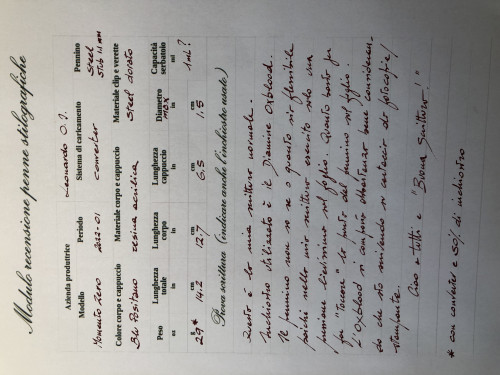 Modulo recensione penne stilografiche
Azienda produttrice
Leonardo O.I.
Modello Periodo Sistema di caricamento Pennino
Momento Zero 2022-01 converter Steel
Stub 1.1 mm
Colore corpo e cappuccio Materiale corpo e cappuccio Materiale clip e verette
Blu Positano resina acrilica Steel dorato
Peso Lunghezza totale Lunghezza corpo Lunghezza cappuccio Diametro max Capacità serbatoio
oz g in cm in cm in cm in cm ml
29* 14.2 12.7 6.5 1.5 1 ml?
Prova scrittura (indicare anche l'inchiostro usato)
Questa è la mia scrittura normale.
Inchiostro utilizzato è il Diamine Oxblood.
Il pennino non so se o quanto sia flessibile
poiché nella mia scrittura esercito solo una
pressione lievissima sul foglio. Questo tanto fa
fa "toccare" la punta del pennino sul foglio.
L'Oxblood si comporta abbastanza bene consideran-
do che sto scrivendo su carta da fotocopie/
stampante.
Ciao a tutti e "Buona scrittura!"
* con converter e 50% di inchiostro